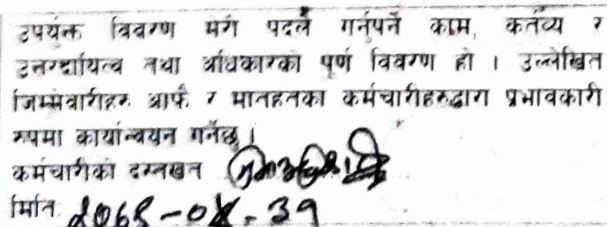 उपर्युक्त विवरण मेरो पदले गर्नुपर्ने काम, कर्तव्य र
उत्तरदायित्व तथा अधिकारको पूर्ण विवरण हो । उल्लेखित
जिम्मेवारीहरु आफै र मातहतका कर्मचारीहरुद्वारा प्रभावकारी
रुपमा कार्यान्वयन गर्नेछु ।
कर्मचारीको दस्तखत
मिति